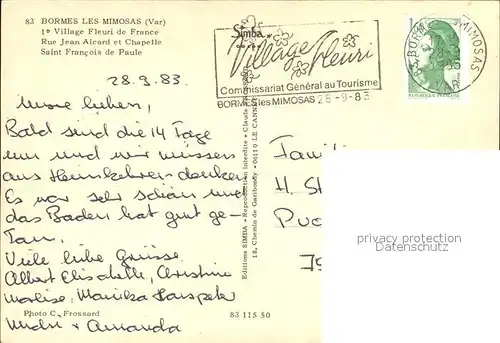 83 BORMES LES MIMOSAS (Var)
1º Village Fleuri de France
Rue Jean Aicard et Chapelle
Saint François de Paule
28.9.83.
Bald sind die 14 Tage
um und wir müssen
ans Heimkehren denken
Es war sehr schön und
das Baden hat gut ge-
tan.
Viele liebe Grüsse
Albert Elisabeth, Christine
Marlise, Manika Hanspeter
+ Amanda
Photo C. Frossard
83 115 50
Editions SIMBA - Reproduction Interdite - Claude
18, Chemin de Garibondy - 06110 LE CANNET
Simba
Village Fleuri
Commissariat Général au Tourisme
BORMES les MIMOSAS 26-9-83
83 BORM
VAR
Famil
H. St
privacy protection
Datenschutz